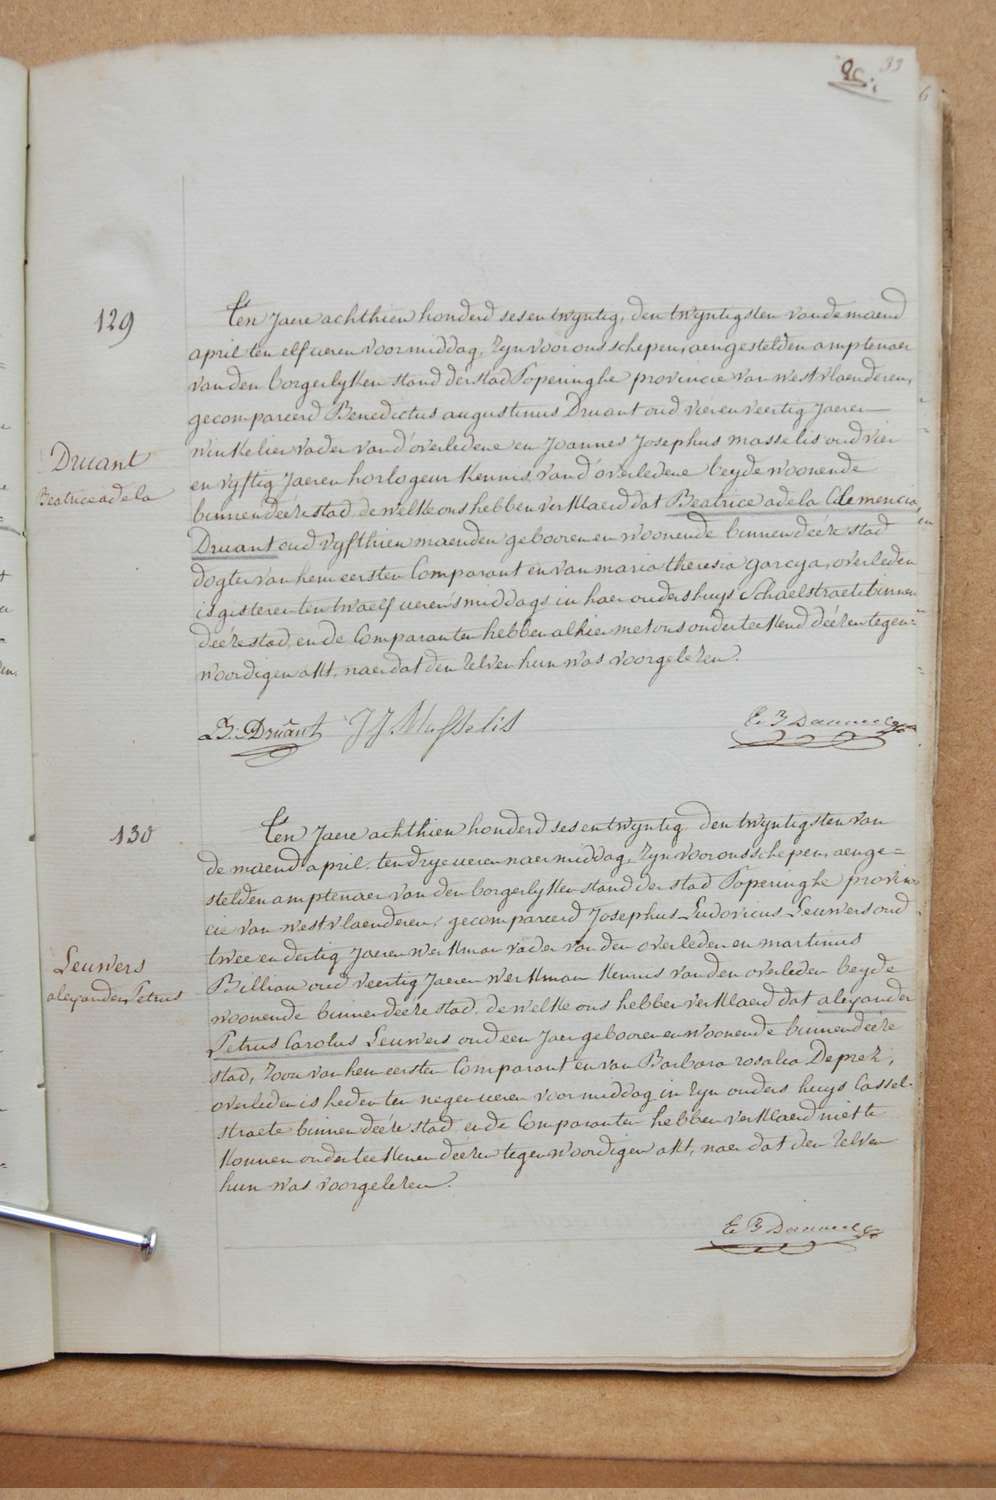 33
129
Ten Jaere achthien honderd sesentwyntig, den twyntigsten van de maend
april ten elf ueren voormiddag, Zyn voor ons schepen, aengestelden amptenaer
van den borgerlyken stand der stad Poperinghe provincie van westvlaenderen,
gecompareerd Benedictus augustinus Druant oud vier en veertig Jaeren
winkelier vader van d'overledene en Joannes Josephus masselis oud vier
en vyftig Jaeren horlogeur kennis van d'overledene beyde woonende
binnen deéze stad, de welke ons hebben verklaerd dat Beatrice adela Clemencia
Druant oud vyfthien maenden gebooren en woonende binnen deéze stad
dogter van hem eersten Comparant en van maria theresia garcya, overleden
is gisteren ten twaelf ueren s'middags in haer ouders huys Schaelstraete binnen
deéze stad, en de Comparanten hebben alhier met ons onderteekend déézen tegen=
woordigen akt, naer dat den zelven hun was voorgelezen.
Druant
Beatrice adela
B. Druant J J Masselis
130
Ten Jaere achthien honderd sesentwyntig, den twyntigsten van
de maend april, ten drye ueren naermiddag, Zyn voor ons schepen, aenge=
stelden amptenaer van den borgerlyken stand der stad Poperinghe provin=
cie van westvlaenderen, gecompareerd Josephus Ludovicus Leuwers oud
twee en dertig Jaeren werkman vader van den overleden en martinus
Billiau oud veertig Jaeren werkman kennis van den overleden beyde
woonende binnen deéze stad, de welke ons hebben verklaerd dat alexander
Petrus Carolus Leuwers oud een Jaer gebooren en woonende binnen deéze
stad, Zoon van hem eersten Comparant en van Barbara rosalia Deprez,
overleden is heden ten negen ueren voormiddag in Zyn ouders huys Cassel-
straete binnen deéze stad, en de Comparanten hebben verklaerd niet te
konnen onderteekenen deézen tegenwoordigen akt, naer dat den zelven
hun was voorgelezen.
Leuwers
alexander Petrus